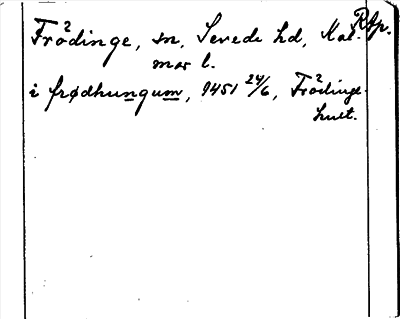 RAp.
Frödinge, sn, Sevede hd, Kal-
mar l.
i frødhungum, 1451 24/6, Frödinge-
hult.